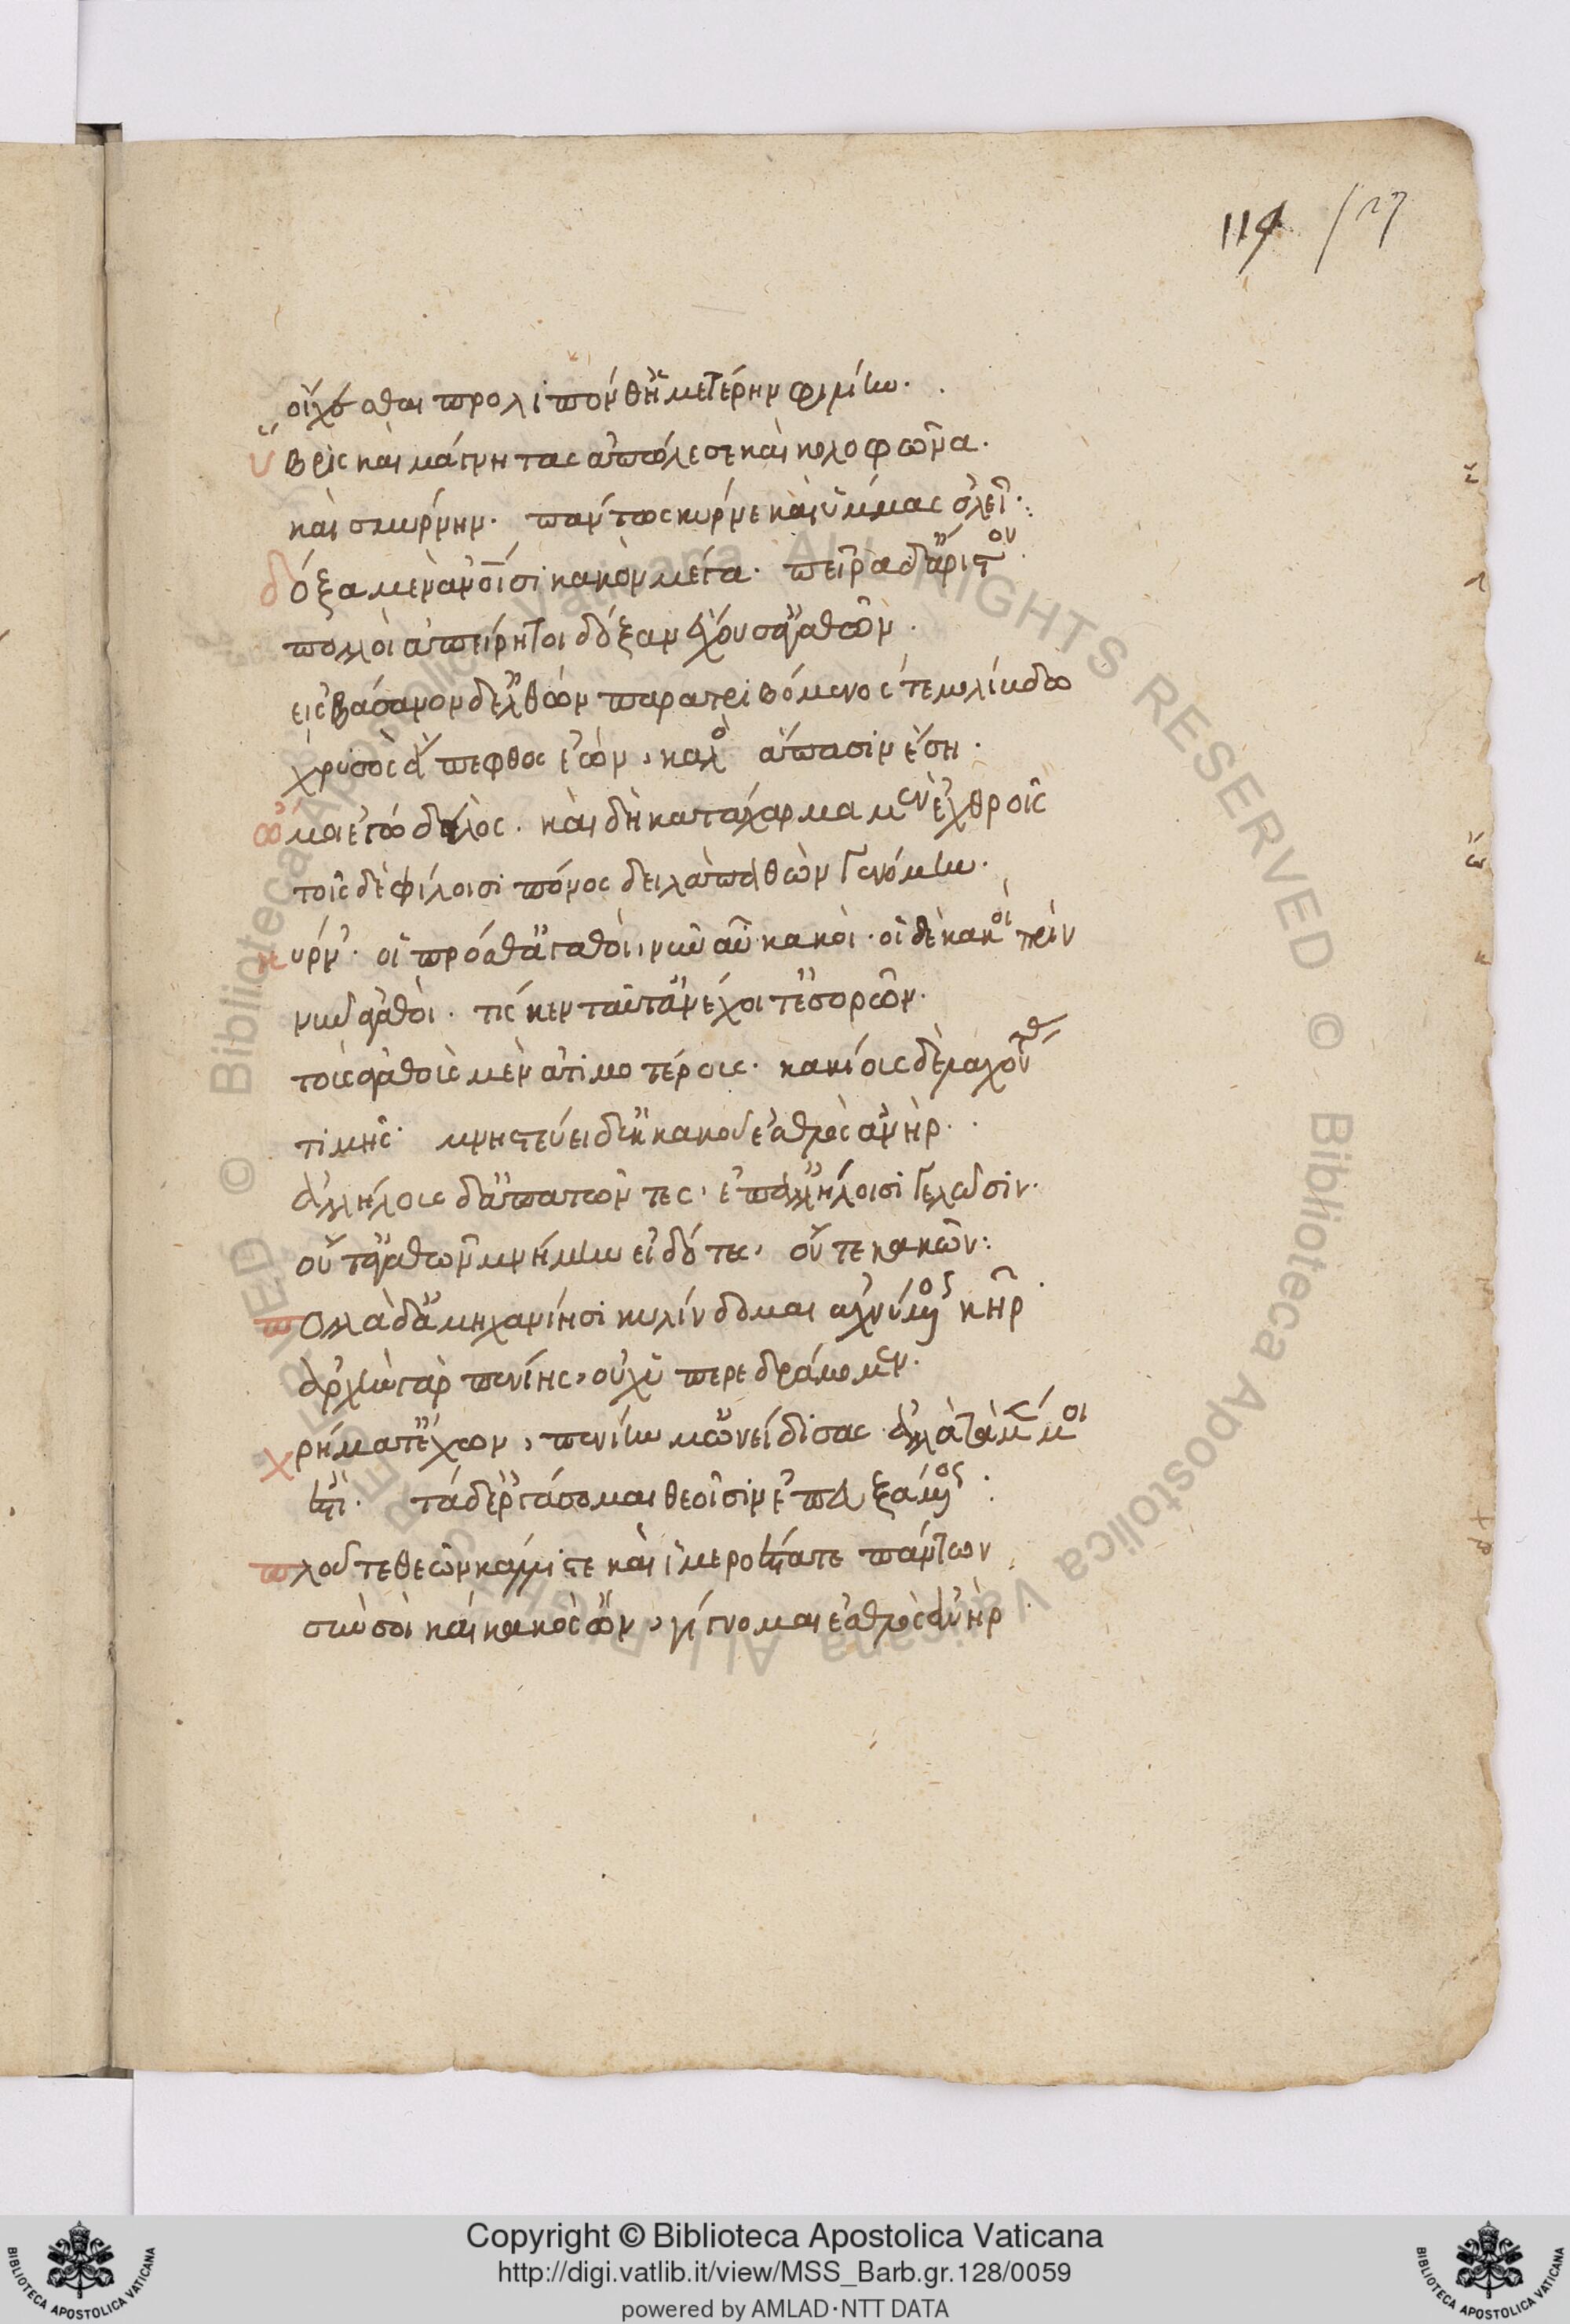 119 127
οἴχεσθαι προλιπόνθ' ἡμετέρην φιλίην.
ὕβρις καὶ μάγνητας ἀπώλεσε καὶ κολοφῶνα.
καὶ σμύρνην. πάντως κύρνε καὶ ὔμμας ὀλεῖ:
δόξα μὲν ἀνθρώποισι κακὸν μέγα. πεῖρα δ' ἄριστον.
πολλοὶ ἀπείρητοι δόξαν ἔχουσ' ἀγαθῶν.
εἰς βάσανον δ' ἐλθὼν παρατριβόμενός τε μολίβδω
χρυσὸς ἄπεφθος ἐὼν, καλὸς ἅπασιν ἔση.
ὤμοι ἐγὼ δειλός. καὶ δὴ κατάχαρμα μὲν ἐχθροῖς
τοῖς δὲ φίλοισι πόνος δειλὰ παθὼν γενόμην.
κύρν'. οἱ πρόσθ' ἀγαθοὶ, νῦν αὖ κακοὶ. οἱ δὲ κακοὶ πρὶν
νῦν ἀγαθοὶ. τίς κεν ταῦτ' ἀνέχοιτ' ἐσορῶν.
τοὺς ἀγαθοὺς μὲν ἀτιμοτέρους. κακίους δὲ λαχόντας
τιμῆς. μνηστεύει δ' ἐκ κακοῦ ἐσθλὸς ἀνὴρ.
ἀλλήλους δ' ἀπατῶντες, ἐπ' ἀλλήλοισι γελῶσιν.
οὔτ' ἀγαθῶν μνήμην εἰδότες, οὔτε κακῶν:
πολλὰ δ' ἀμηχανίησι κυλίνδομαι ἀχνύμενος κῆρ.
ἀρχὴν γὰρ πενίης, οὐχ ὑπερεδράμομεν.
χρήματ' ἔχων, πενίην μ' ὠνείδισας. ἀλλὰ τὰ μέν μοι
ἔστι. τὰ δ' ἐργάσομαι θεοῖσιν ἐπευξάμενος:
πλοῦτε θεῶν κάλλιστε καὶ ἱμεροέστατε πάντων
σὺν σοὶ καὶ κακὸς ὢν, γίγνομαι ἐσθλὸς ἀνὴρ.
Copyright © Biblioteca Apostolica Vaticana
http://digi.vatlib.it/view/MSS_Barb.gr.128/0059
powered by AMLAD·NTT DATA